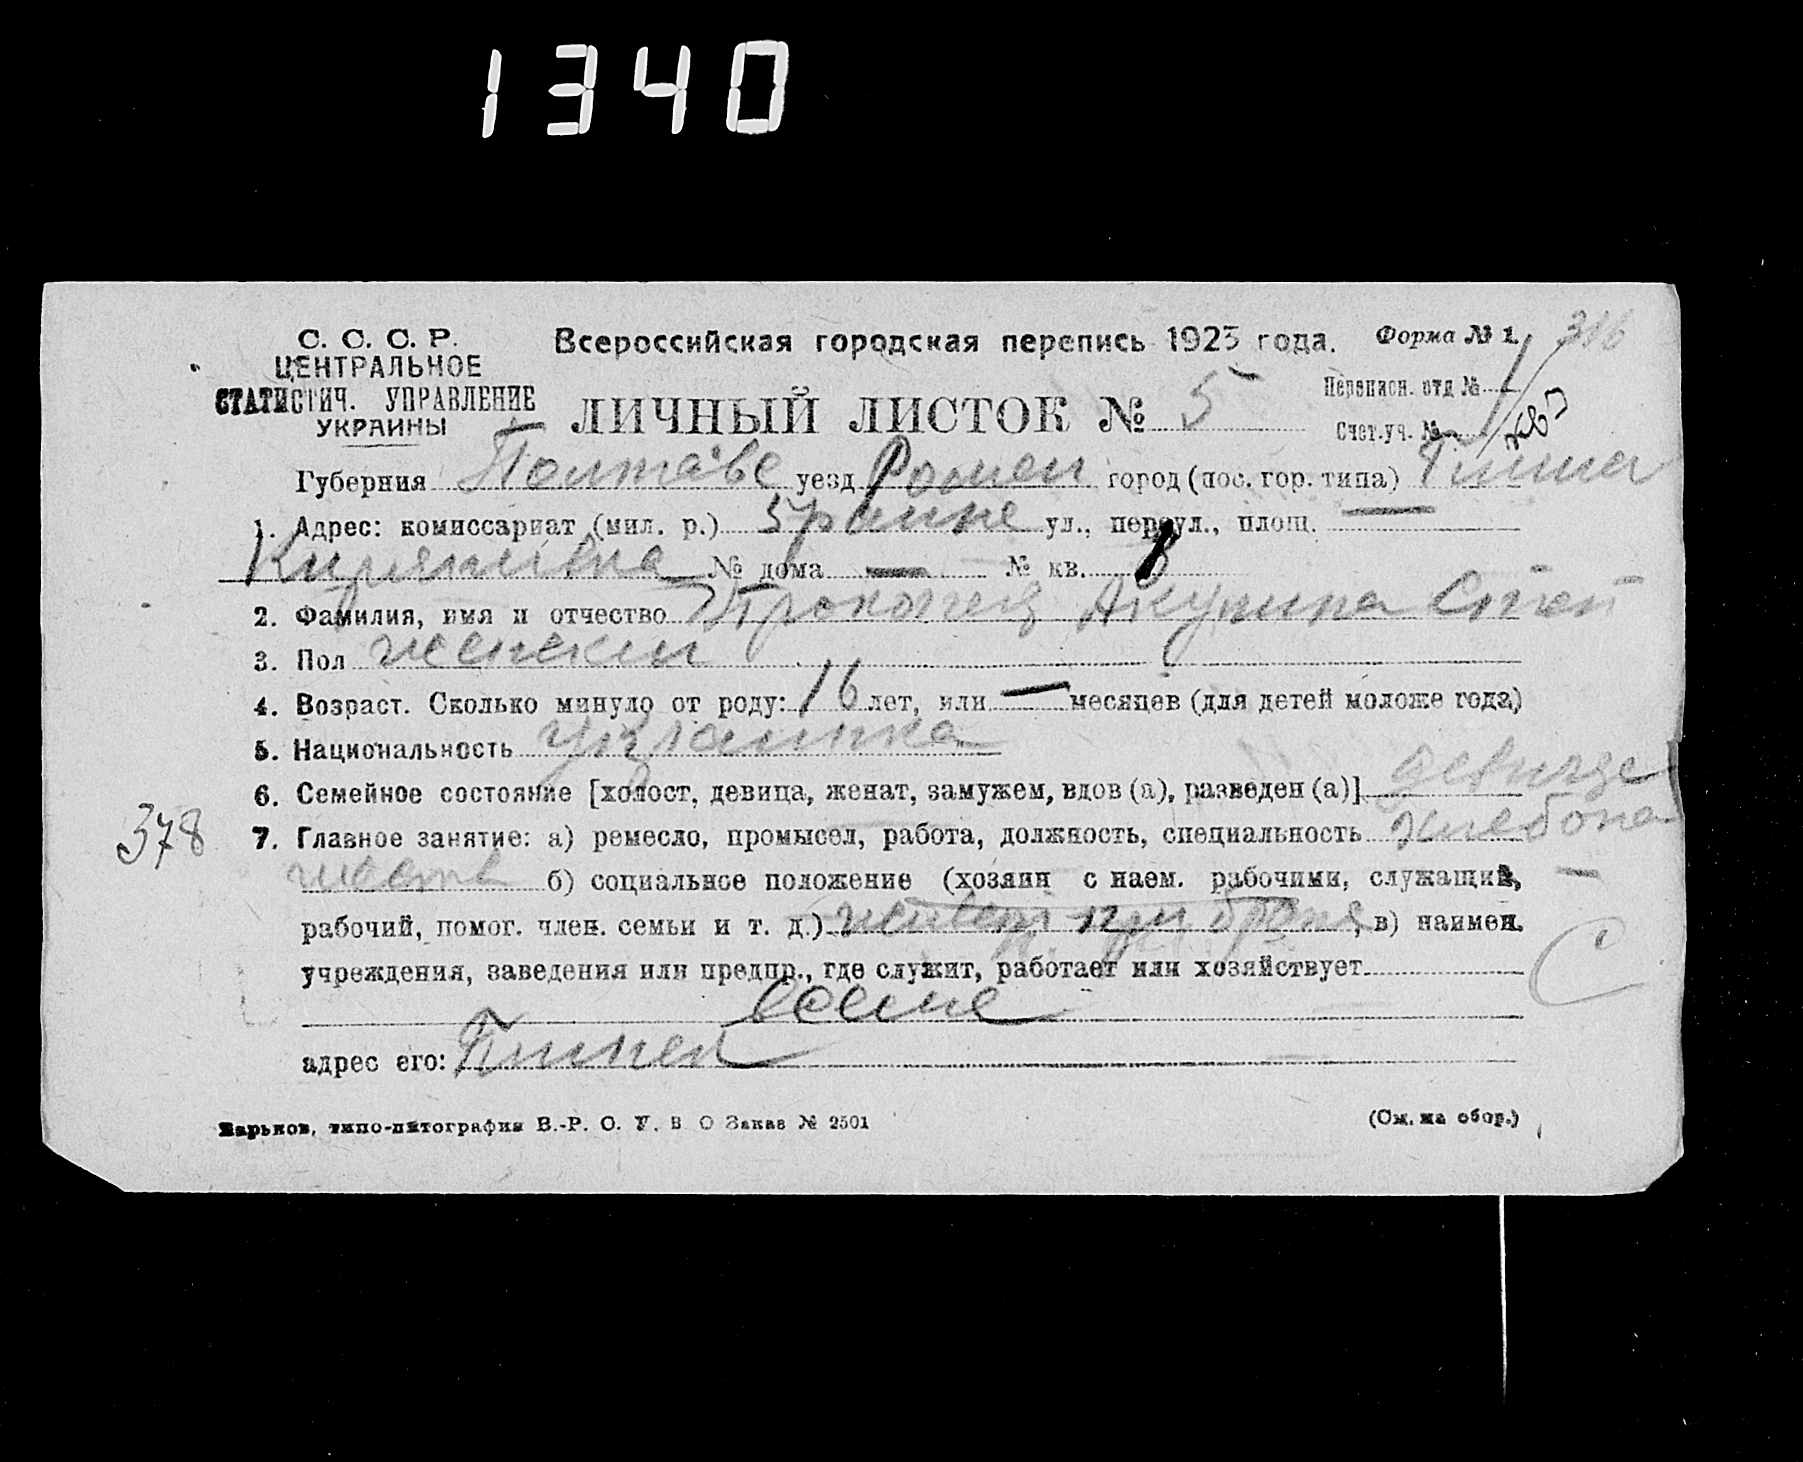 1340
С. С. С. Р.
ЦЕНТРАЛЬНОЕ
СТАТИСТИЧ. УПРАВЛЕНИЕ
УКРАИНЫ
Всероссийская городская перепись 1923 года.
Форма № 1.
316
ЛИЧНЫЙ ЛИСТОК № 5
Переписн. отд №
Счет.уч. №
Губерния Полтаве уезд Ромен город (пос. гор. типа)
1. Адрес: комиссариат (мил. р.) ул., переул., площ. —
№ дома — № кв.
2. Фамилия, имя и отчество Прокопец Акулина Степ
3. Пол женский
4. Возраст. Сколько минуло от роду: 16 лет, или — месяцев (для детей моложе года)
5. Национальность Украинка
6. Семейное состояние [холост, девица, женат, замужем, вдов (а), разведен (а)] девица
378
7. Главное занятие: а) ремесло, промысел, работа, должность, специальность хлебопа
шество б) социальное положение (хозяин с наем. рабочими, служащий,
рабочий, помог. член. семьи и т. д.) живет при в) наимен.
учреждения, заведения или предпр., где служит, работает или хозяйствует
С
адрес его:
Харьков, типо-литография В.-Р. О. У. В О Заказ № 2501
(См. на обор.)